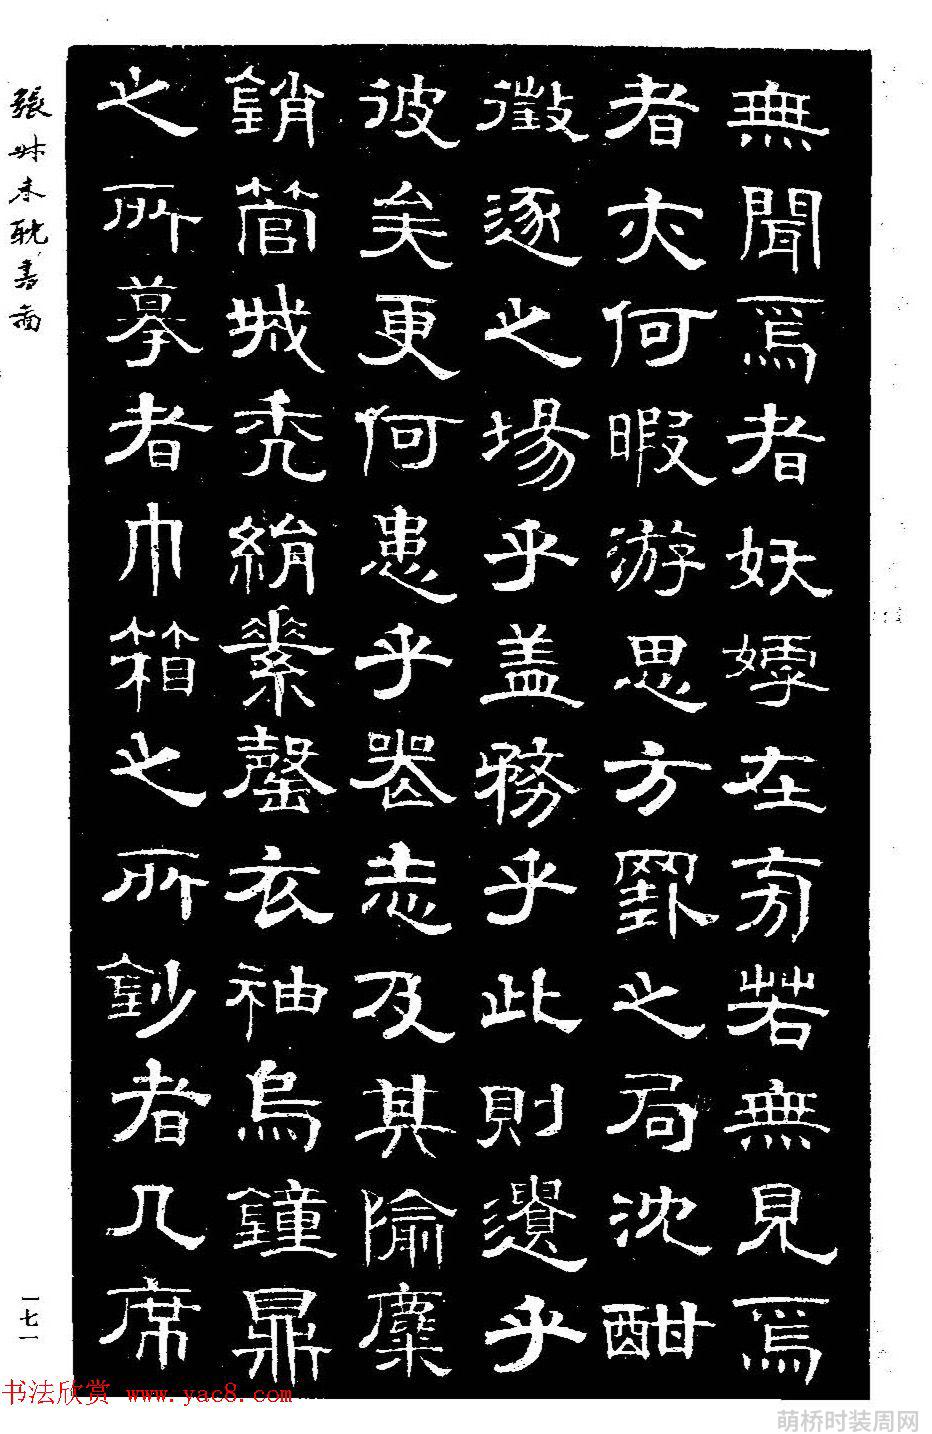 無聞焉者妖嫮在旁若無見焉
者夾何暇游思方罫之局沈酣
徵逐之場乎盖務乎此則遺乎
彼矣更何患乎器志及其隃麋
銷管城禿絹素罄衣袖烏鐘鼎
之所摹者巾箱之所鈔者几席
張叔未耽書啚
一七一
书法欣赏 www.yac8.com
萌桥时装周网